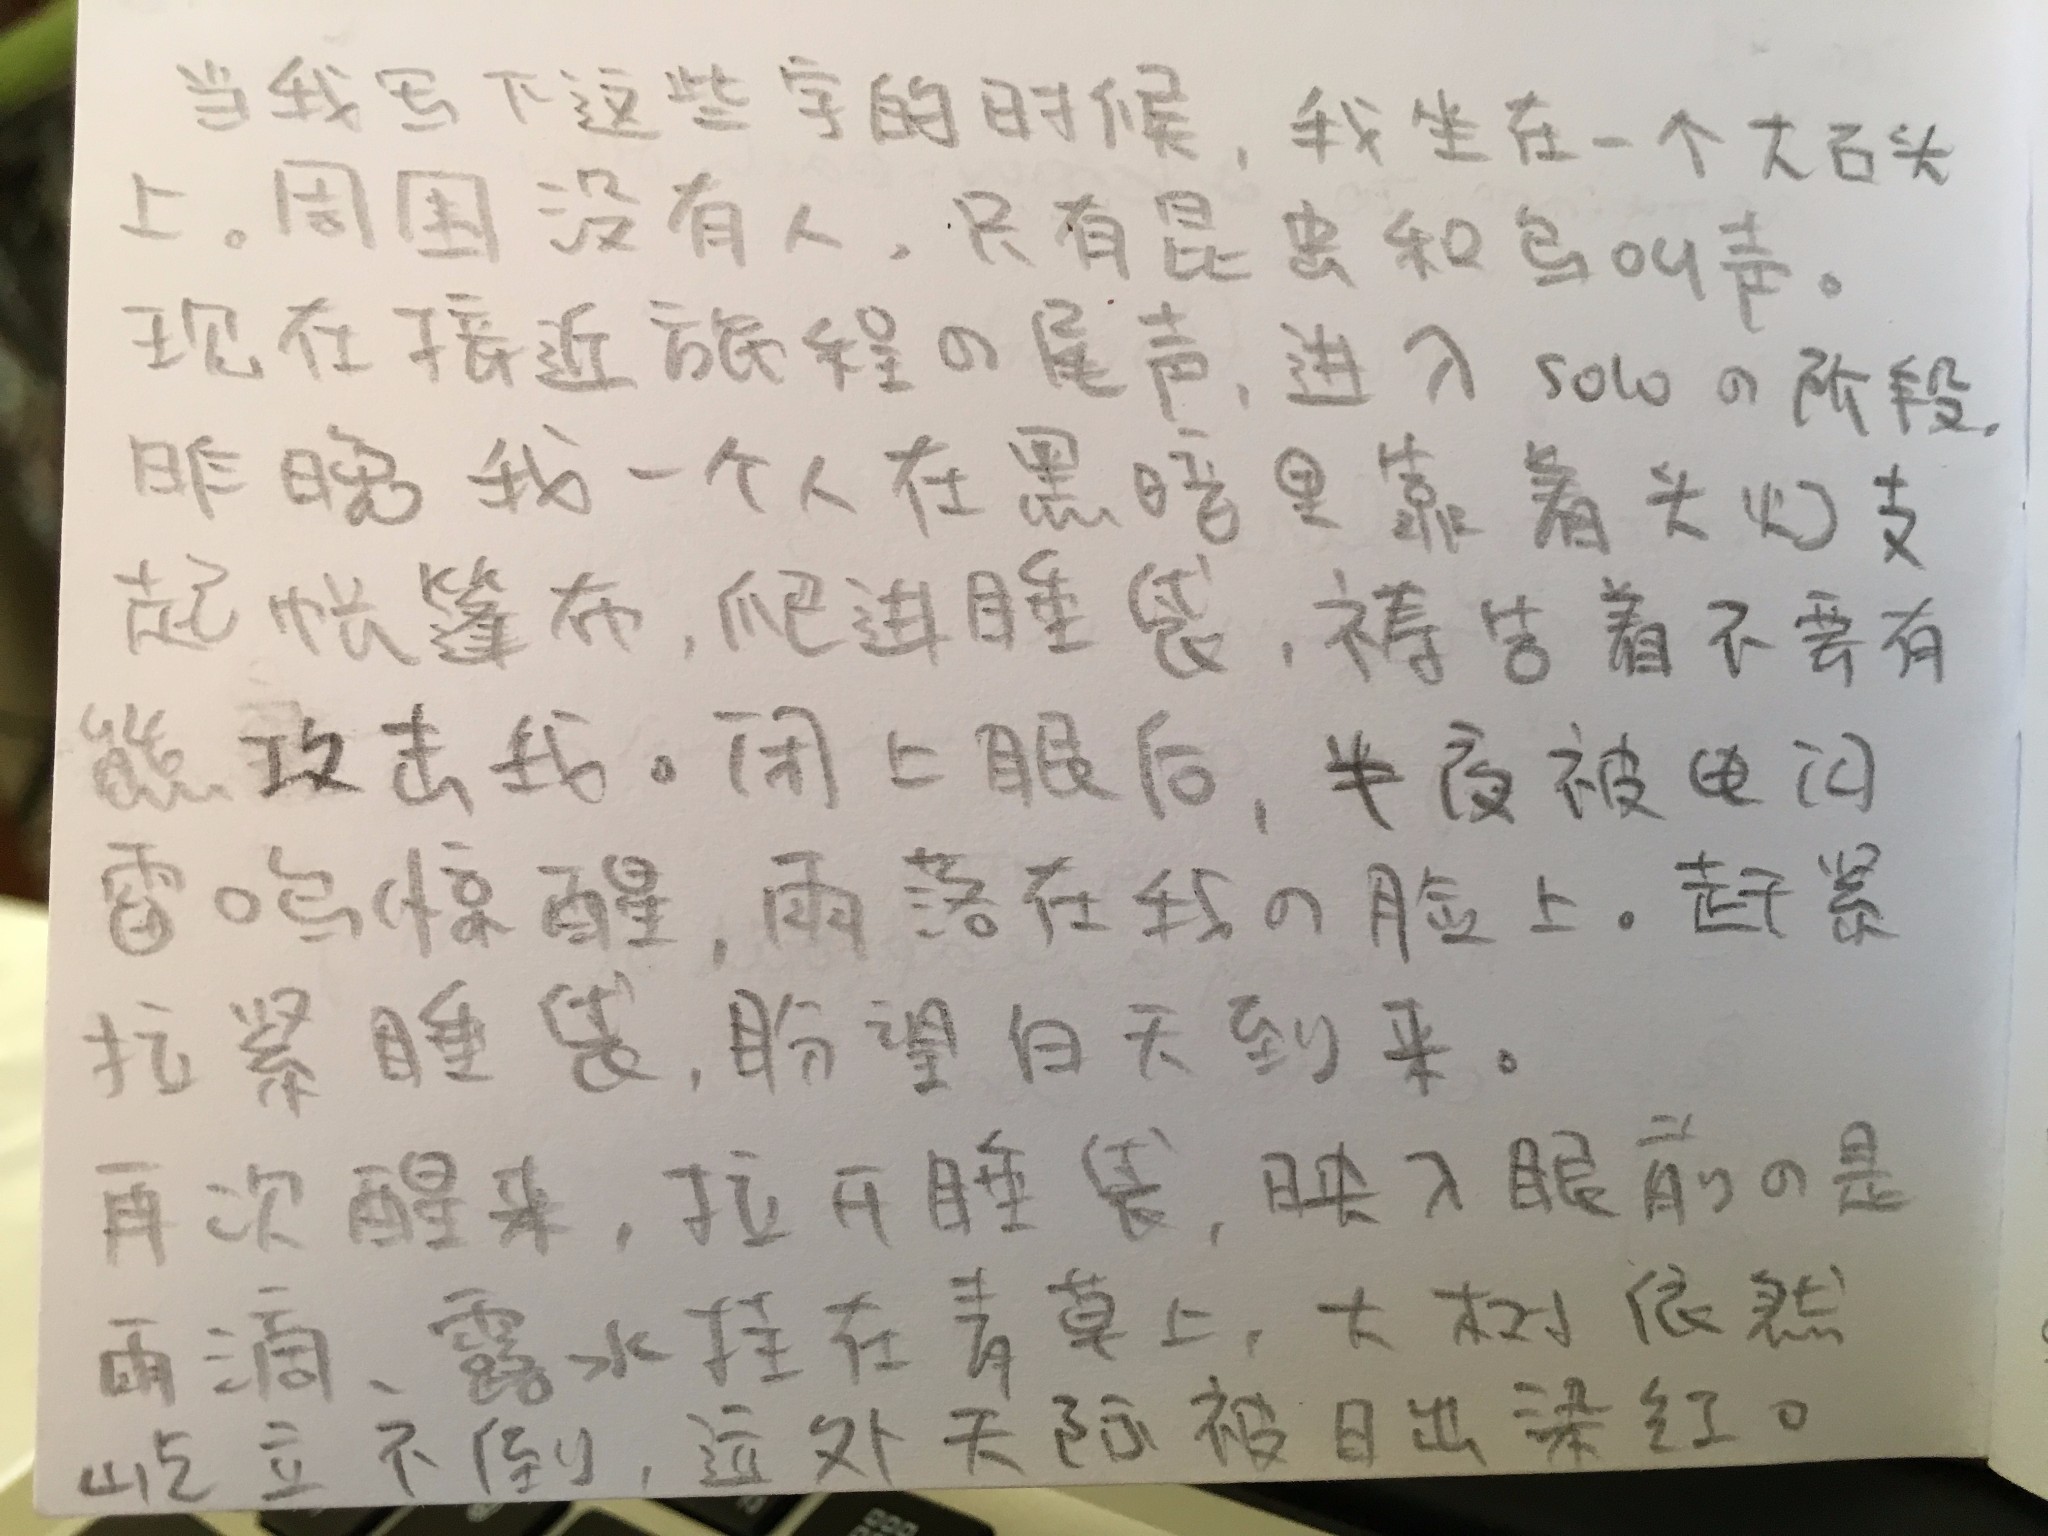 当我写下这些字的时候，我坐在一个大石头
上。周围没有人，只有昆虫和鸟叫声。
现在接近旅程の尾声，进入solo の阶段。
昨晚我一个人在黑暗里靠着头灯支
起帐篷布，爬进睡袋，祷告着不要有
熊攻击我。闭上眼后，半夜被电闪
雷鸣惊醒，雨落在我の脸上。赶紧
拉紧睡袋，盼望白天到来。
再次醒来，拉开睡袋，映入眼前の是
雨滴、露水挂在青草上，大树依然
屹立不倒，远处天际被日出染红。